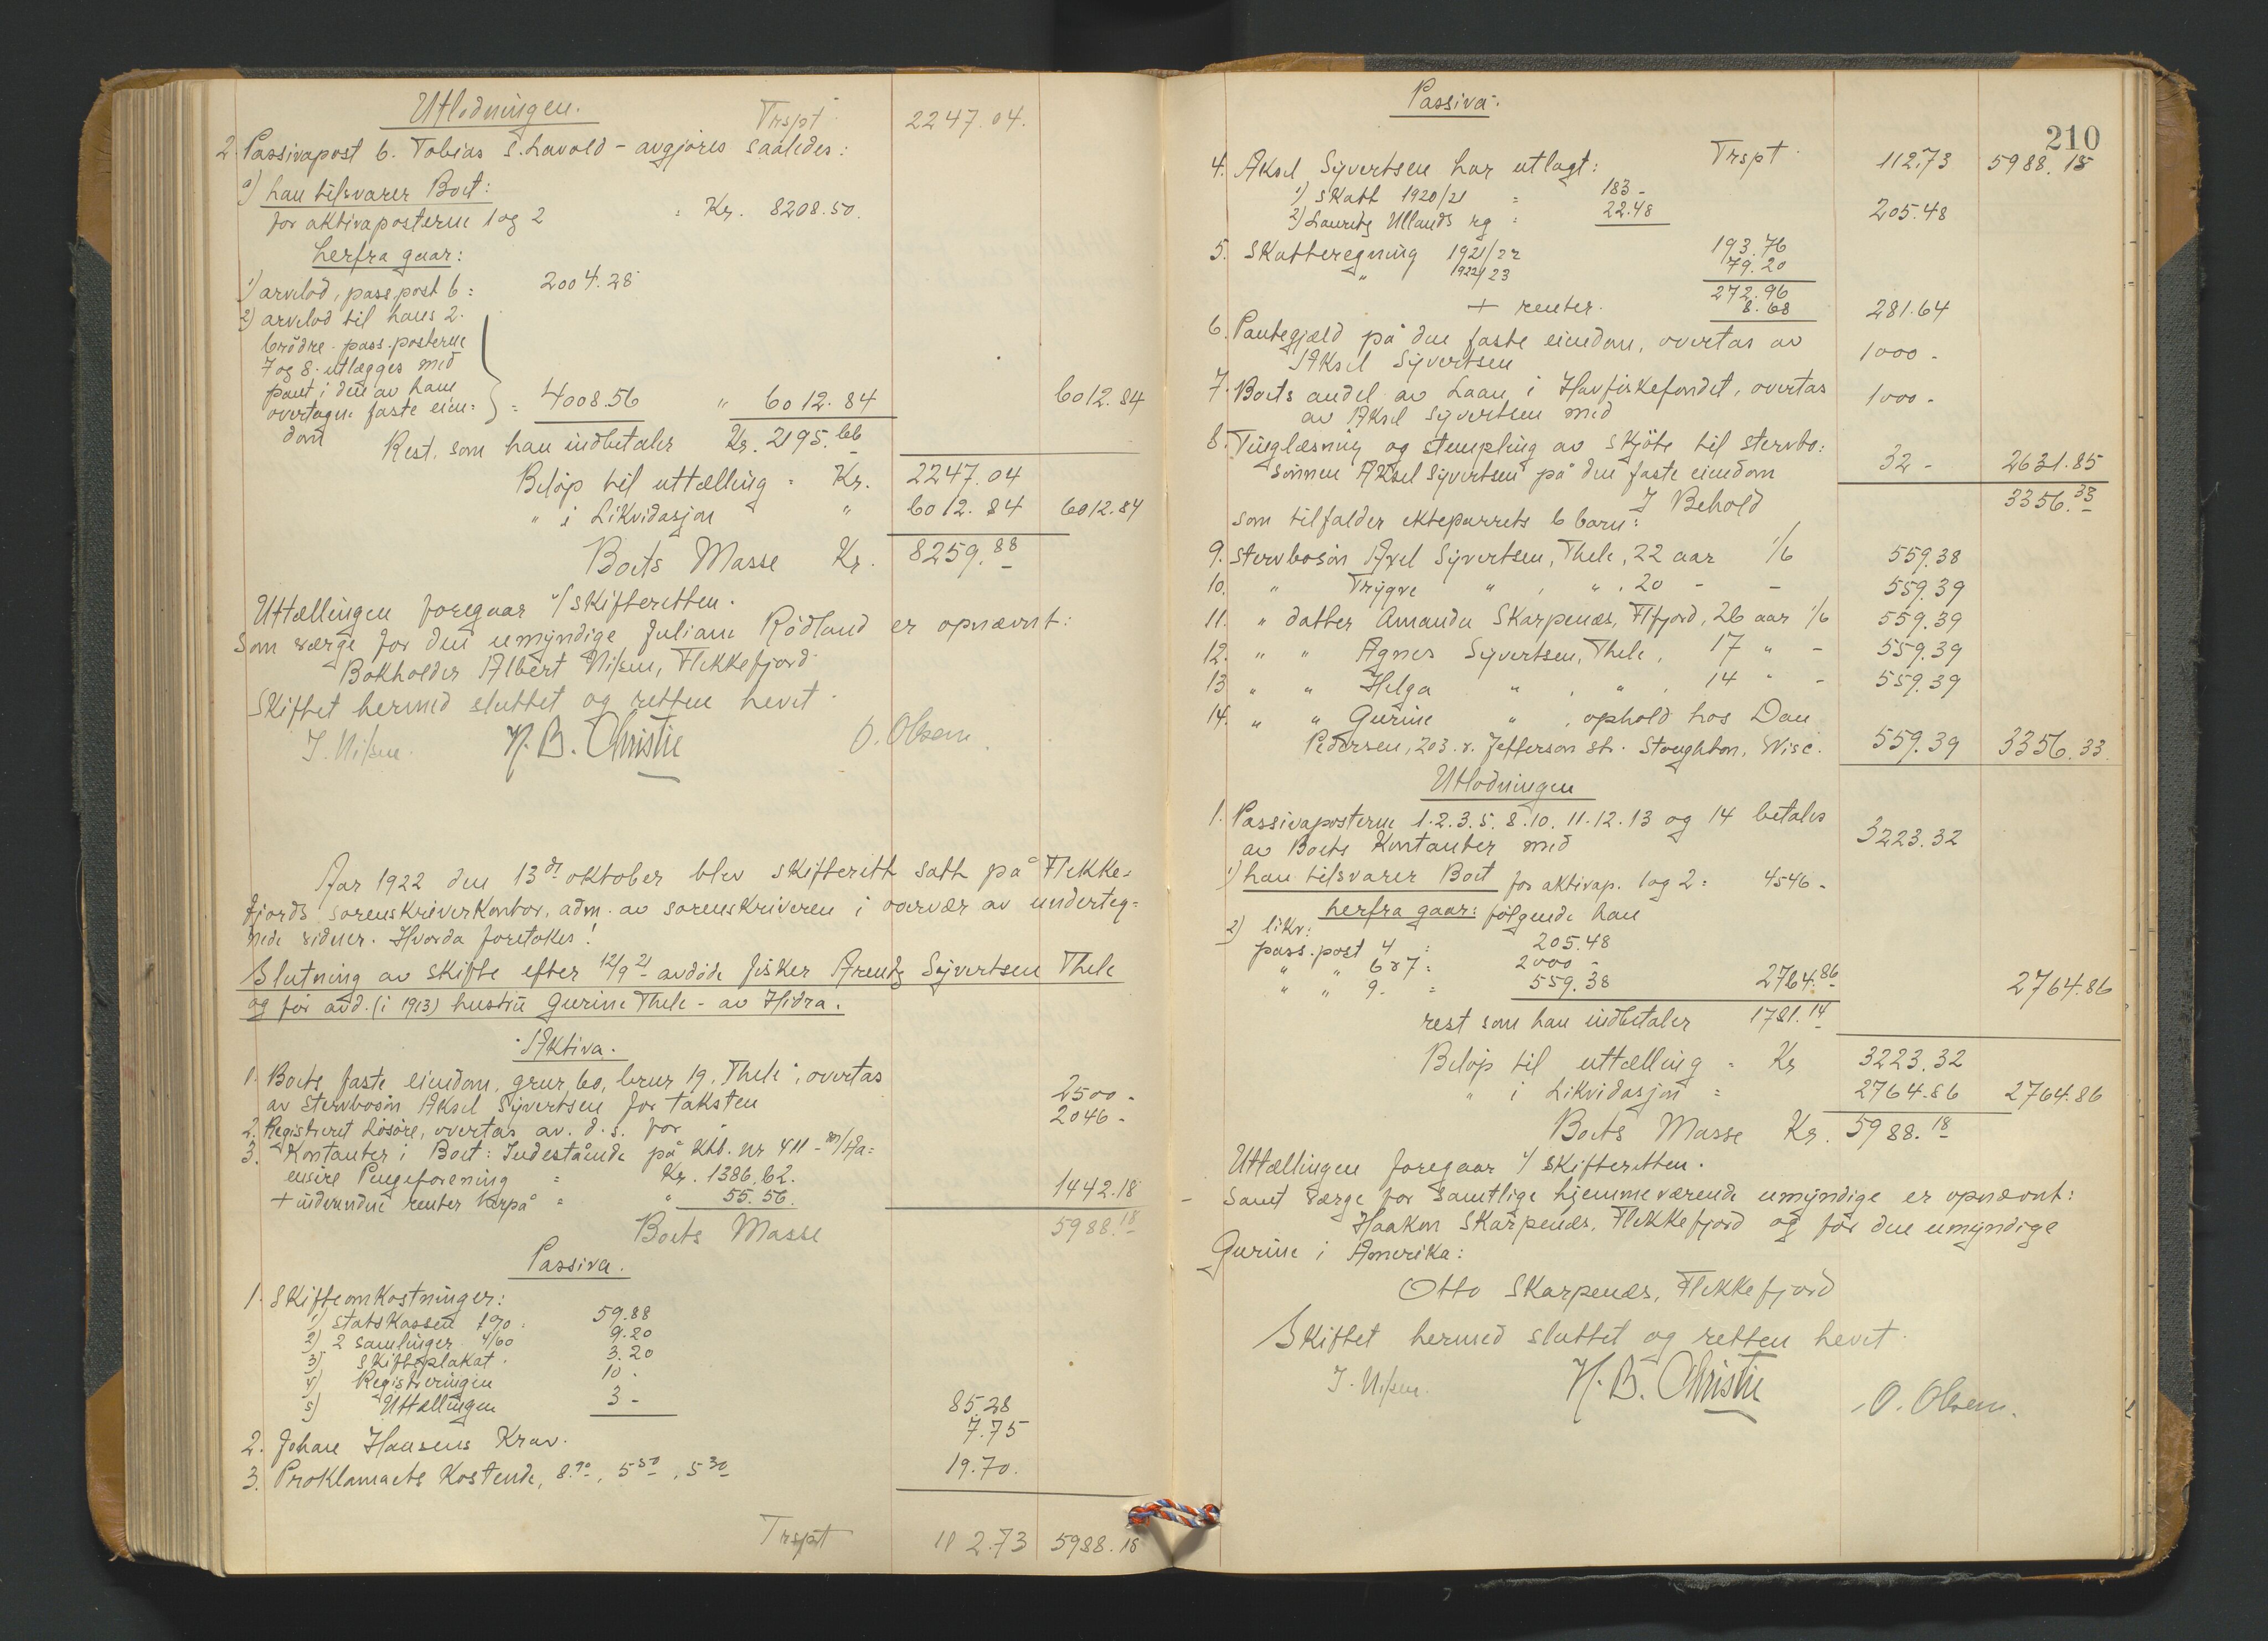 Utlodningen.
Trspt 2247.04.
2. Passivapost 6. Tobias S. Lavold - avgjøres saaledes:
a) han tilsvarer Boet:
for aktivaposterne 1 og 2 = Kr. 8208.50.
herfra gaar:
1) arvelod, pass.post 6 = 2004.28
2) arvelod til hans 2.
brødre - pass.posterne
7 og 8 - utlægges med
pant i den av ham
overtagne faste eien=
dom = 4008.56 " 6012.84 6012.84
Rest, som han indbetaler Kr. 2195.66
Beløp til uttælling = Kr. 2247.04
" i Likvidasjon " 6012.84 6012.84
Boets Masse Kr. 8259.88
Uttællingen foregaar v/ skifteretten.
Som verge for den umyndige Juliane Rødland er opnævnt:
Bokholder Albert Nilsen, Flekkefjord
Skiftet hermed sluttet og retten hevet.
J. Nilsen. N. B. Christie O. Olsen.
Aar 1922 den 13de oktober blev skifterett satt på Flekke=
fjords sorenskriverkontor, adm. av sorenskriveren i overvær av underteg=
nede vidner. Hvorda foretokes:
Slutning av skifte efter 12/9 21 avdøde fisker Arendz Syvertsen Thele
og før avd. (i 1913) hustru Gurine Thele - av Hidra.
Aktiva.
1. Boets faste eiendom, grnr. 60, brnr 19. Thele, overtas
av stervbosøn Aksel Syvertsen for taksten 2500 -
2. Registreret Løsøre, overtas av d. s. for 2046 -
3. Kontanter i Boet: Indestående på Ktb. nr 411 -
Pengeforening = Kr. 1386.62.
+ indvundne renter herpå = " 55.56. 1442.18
Boets Masse 5988.18
Passiva.
1. Skifteomkostninger:
1) Statskassen 1% : 59.88
2) 2 samlinger 4/60 9.20
3) Skifteplakat. 3.20
4) Registreringen 10 -
5) Uttællingen 3 - 85.28
2. Johan Hansens Krav. 7.75
3. Proklamaets Kostende, 8.90, 5.50, 5.30 19.70.
Trspt 112.73 5988.18
Passiva.
210
Trspt 112.73 5988.18
4. Aksel Syvertsen har utlagt:
1) Skatt 1920/21 = 183 -
2) Lauritz Ullands rg = 22.48 205.48
5. Skatteregning 1921/22 193.76
" 1922/23 79.20
272.96
+ renter. 8.68 281.64
6. Pantegjæld på den faste eiendom, overtas av
Aksel Syvertsen 1000 -
7. Boets andel av Laan i Havfiskefondet, overtas
av Aksel Syvertsen med 1000 -
8. Tinglæsning og stempling av skjøte til stervbo=
sønnen Aksel Syvertsen på den faste eiendom 32 - 2631.85
I Behold 3356.33
som tilfalder ekteparrets 6 barn:
9. Stervbosøn Axel Syvertsen, Thele, 22 aar 1/6 559.38
10. " Trygve " , " , 20 - - 559.39
11. " datter Amanda Skarpenæs, Flfjord, 26 aar 1/6 559.39
12. " " Agnes Syvertsen, Thele, 17 " - 559.39
13 " " Helga " , " , 14 " - 559.39
14. " " Gurine " , ophold hos Dan
Pedersen, 203. r. Jefferson str. Stoughton, Wisc. 559.39 3356.33.
Utlodningen
1. Passivaposterne 1.2.3.5.8.10.11.12.13 og 14 betales
av Boets Kontanter med 3223.32
1) han tilsvarer Boet for aktivap. 1 og 2 = 4546 -
herfra gaar: følgende han
2) likv:
pass.post 4 = 205.48
" " 6 & 7 = 2000 -
" " 9. = 559.38 2764.86 2764.86
rest som han indbetaler 1781.14
Beløp til uttælling = Kr 3223.32
" i Likvidasjon = 2764.86 2764.86
Boets Masse Kr. 5988.18
Uttællingen foregaar v/ skifteretten.
- Samt verge for samtlige hjemmeværende umyndige er opnævnt:
Haakon Skarpenæs, Flekkefjord og for den umyndige
Gurine i Amerika:
Otto Skarpenæs, Flekkefjord
Skiftet hermed sluttet og retten hevet.
J. Nilsen. N. B. Christie O. Olsen.